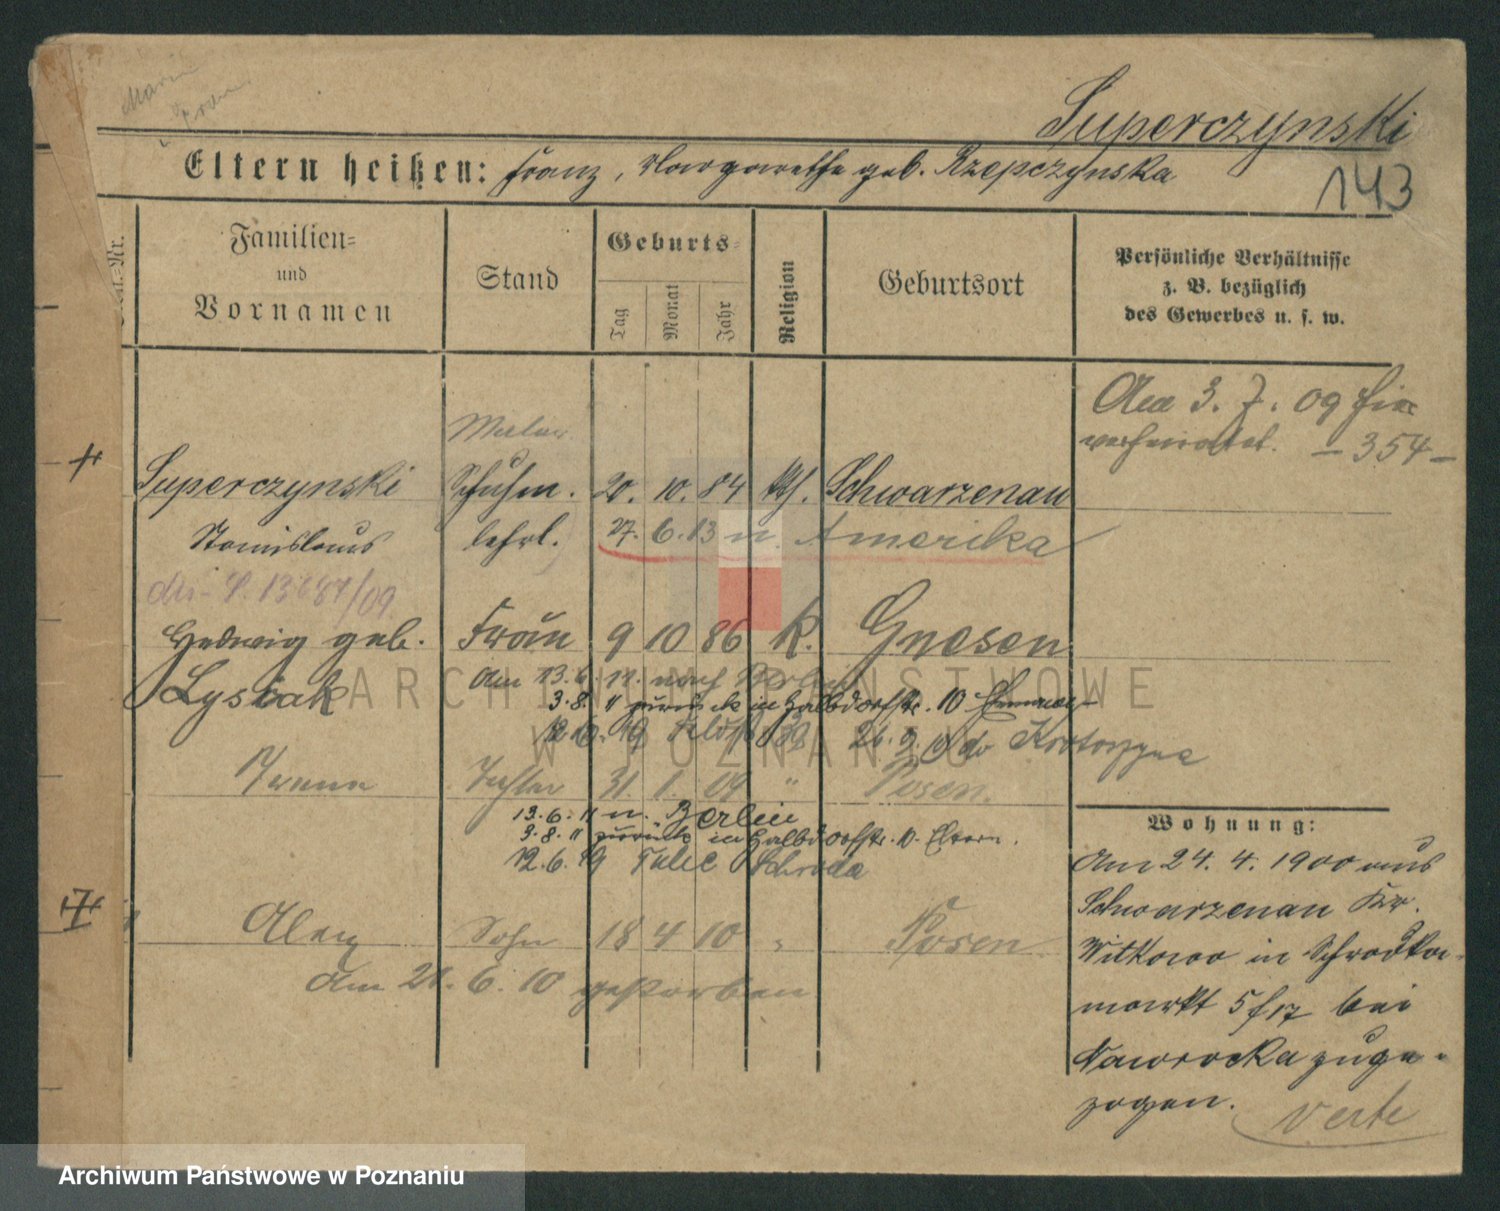 Superczynski
143
Eltern heißen: Franz, Margarethe geb. Rzepczynska
Familien-
und
Vornamen
Stand
Geburts-
Tag
Monat
Jahr
Religion
Geburtsort
Persönliche Verhältnisse
z. B. bezüglich
des Gewerbes u. s. w.
Am 3. 7. 09 hier
verheiratet. - 354 -
Maler
Superczynski Schuhm. 20. 10. 84 kth. Schwarzenau
Stanislaus lehrl. 27. 6. 13 n. Amerika
13687/09
Hedwig geb. Frau 9 10 86 k. Gnesen
Lysiak am 13. 6. 11. nach Berlin
3. 8. 11 zurück in Halbdorfstr. 10
Krotoszyn
Irena Tochter 31. 1. 09 " Posen.
13. 6. 11 n. Berlin
3. 8. 11 zurück in Halbdorfstr. 10. Eltern.
12. 6. 19 Schroda
Sohn 18 4 10 " Posen
am 21. 6. 10 gestorben
Wohnung:
Am 24. 4. 1900 aus
Schwarzenau Kr.
Witkowo in Schrodka
markt 5 bei
Nawrocka zuge-
zogen.
verte
ARCHIWUM PAŃSTWOWE
W POZNANIU
Archiwum Państwowe w Poznaniu